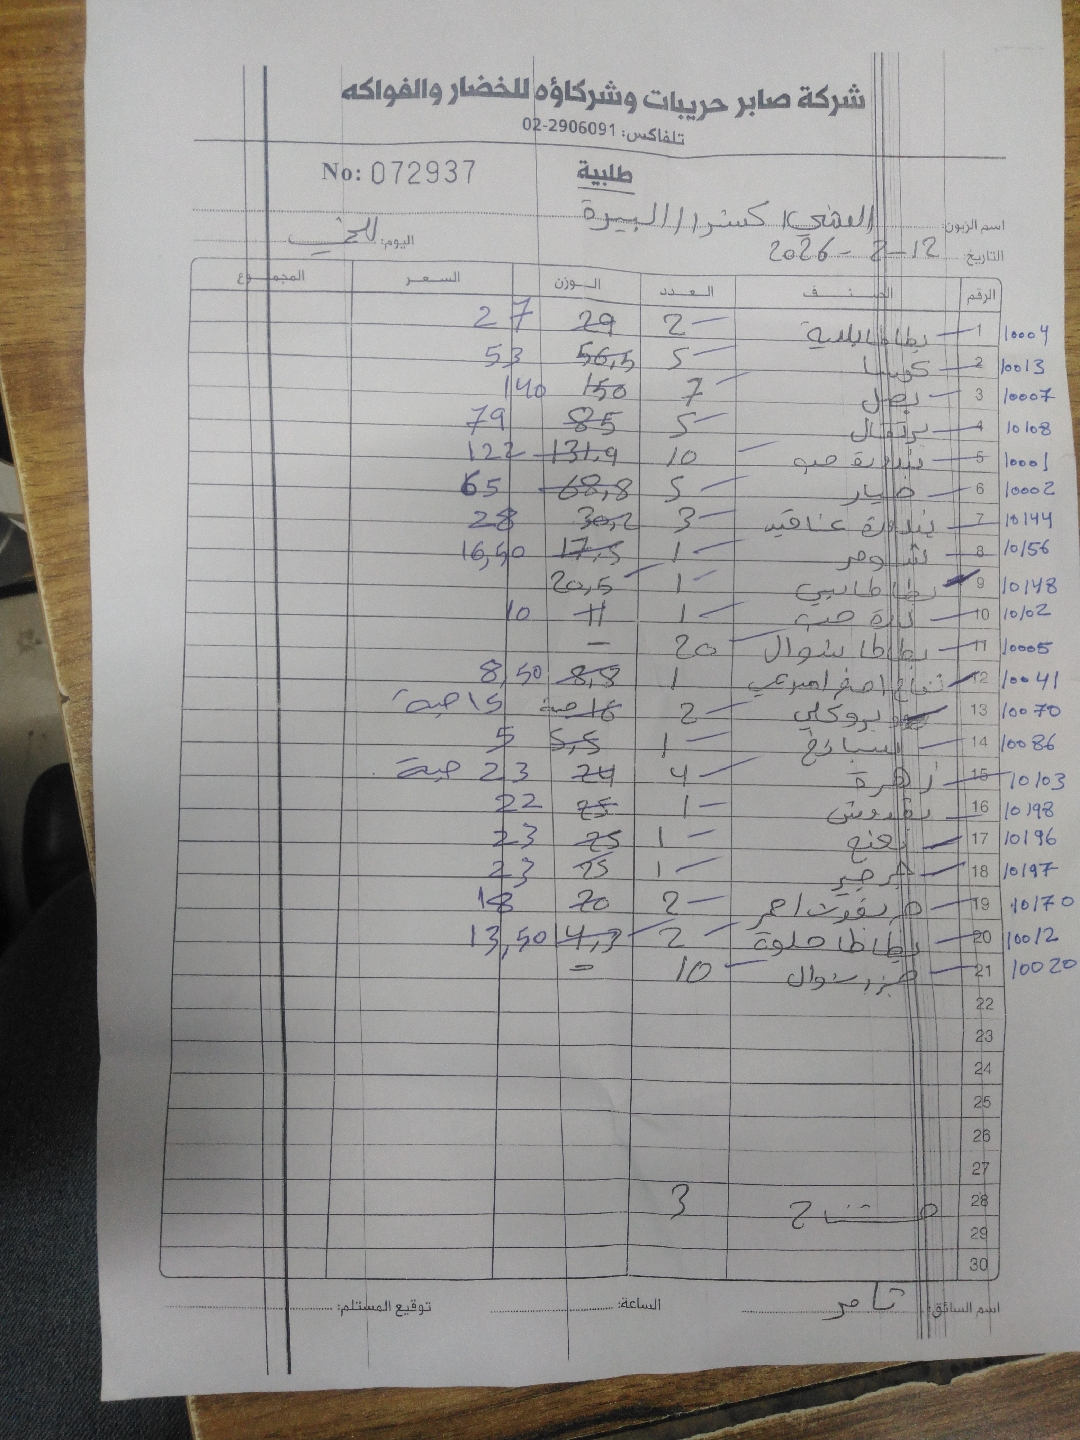 شركة صابر حريبات وشركاؤه للخضار والفواكه
تلفاكس: 02-2906091
طلبية No: 072937
اسم الزبون: البيرة
التاريخ: 12-2-2026 اليوم:
الرقم الصنف العدد الوزن السعر المجموع
10004 1 بطاطا بلدية 2 29 27
10013 2 كوسا 5 56,5 53
10007 3 بصل 7 150 140
10108 4 برتقال 5 85 79
10001 5 بندورة حب 10 131,9 122
10002 6 خيار 5 68,8 65
10144 7 بندورة عناقيد 3 30,2 28
10156 8 شومر 1 17,5 16,50
10148 9 بطاطا بيبي 1 20,5
10102 10 ذرة حب 1 11 10
10005 11 بطاطا شوال 20 -
10041 12 تفاح اصفر 1 8,8 8,50
10070 13 بروكلي 2 16 حبة 15 حبة
10086 14 سبانخ 1 5,5 5
10103 15 زهرة 4 24 23 حبة
10198 16 بقدونس 1 25 22
10196 17 نعنع 1 25 23
10197 18 جرجير 1 25 23
10170 19 جريفوت احمر 2 20 18
10012 20 بطاطا حلوة 2 14,3 13,50
10020 21 جزر شوال 10 -
22
23
24
25
26
27
28 3
29
30
اسم السائق: تامر الساعة: توقيع المستلم: